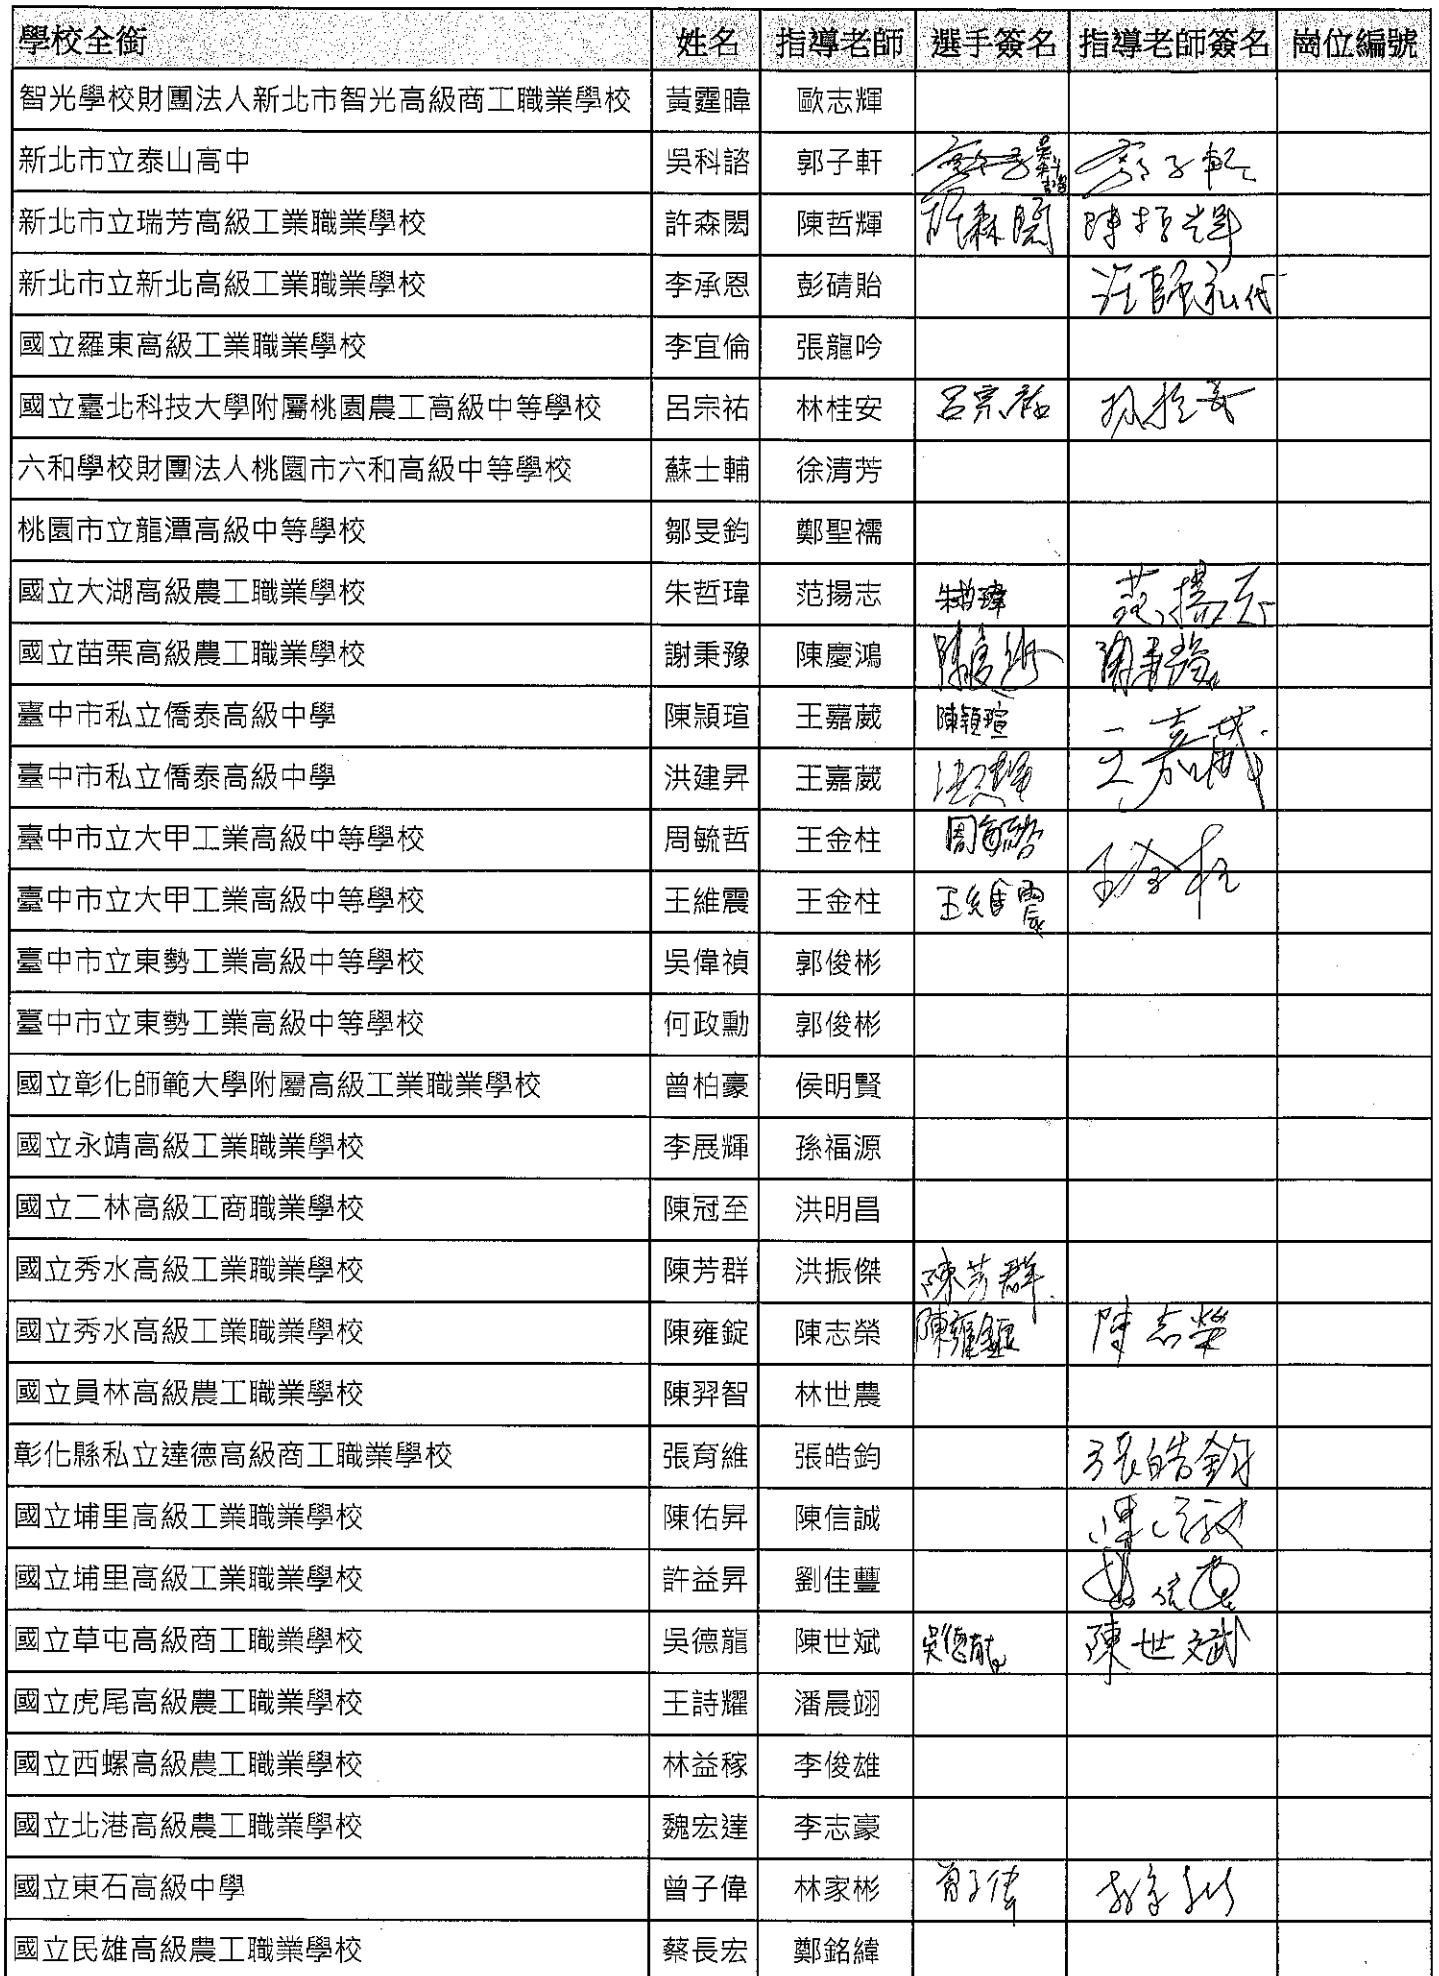 學校全銜 姓名 指導老師 選手簽名 指導老師簽名 崗位編號
智光學校財團法人新北市智光高級商工職業學校 黃霆暐 歐志輝
新北市立泰山高中 吳科諮 郭子軒
新北市立瑞芳高級工業職業學校 許森閎 陳哲輝 許森閎 陳哲輝
新北市立新北高級工業職業學校 李承恩 彭碃貽
國立羅東高級工業職業學校 李宜倫 張龍吟
國立臺北科技大學附屬桃園農工高級中等學校 呂宗祐 林桂安 呂宗祐 林桂安
六和學校財團法人桃園市六和高級中等學校 蘇士輔 徐清芳
桃園市立龍潭高級中等學校 鄒旻鈞 鄭聖襦
國立大湖高級農工職業學校 朱哲瑋 范揚志 朱哲瑋 范揚志
國立苗栗高級農工職業學校 謝秉豫 陳慶鴻
臺中市私立僑泰高級中學 陳穎瑄 王嘉葳 陳穎瑄 王嘉葳
臺中市私立僑泰高級中學 洪建昇 王嘉葳 洪建昇
臺中市立大甲工業高級中等學校 周毓哲 王金柱 周毓哲 王金柱
臺中市立大甲工業高級中等學校 王維震 王金柱 王維震
臺中市立東勢工業高級中等學校 吳偉禎 郭俊彬
臺中市立東勢工業高級中等學校 何政勳 郭俊彬
國立彰化師範大學附屬高級工業職業學校 曾柏豪 侯明賢
國立永靖高級工業職業學校 李展輝 孫福源
國立二林高級工商職業學校 陳冠至 洪明昌
國立秀水高級工業職業學校 陳芳群 洪振傑 陳芳群
國立秀水高級工業職業學校 陳雍錠 陳志榮 陳雍錠 陳志榮
國立員林高級農工職業學校 陳羿智 林世農
彰化縣私立達德高級商工職業學校 張育維 張皓鈞 張皓鈞
國立埔里高級工業職業學校 陳佑昇 陳信誠 陳信誠
國立埔里高級工業職業學校 許益昇 劉佳豐
國立草屯高級商工職業學校 吳德龍 陳世斌 吳德龍 陳世斌
國立虎尾高級農工職業學校 王詩耀 潘晨翊
國立西螺高級農工職業學校 林益稼 李俊雄
國立北港高級農工職業學校 魏宏達 李志豪
國立東石高級中學 曾子偉 林家彬 曾子偉 林家彬
國立民雄高級農工職業學校 蔡長宏 鄭銘緯